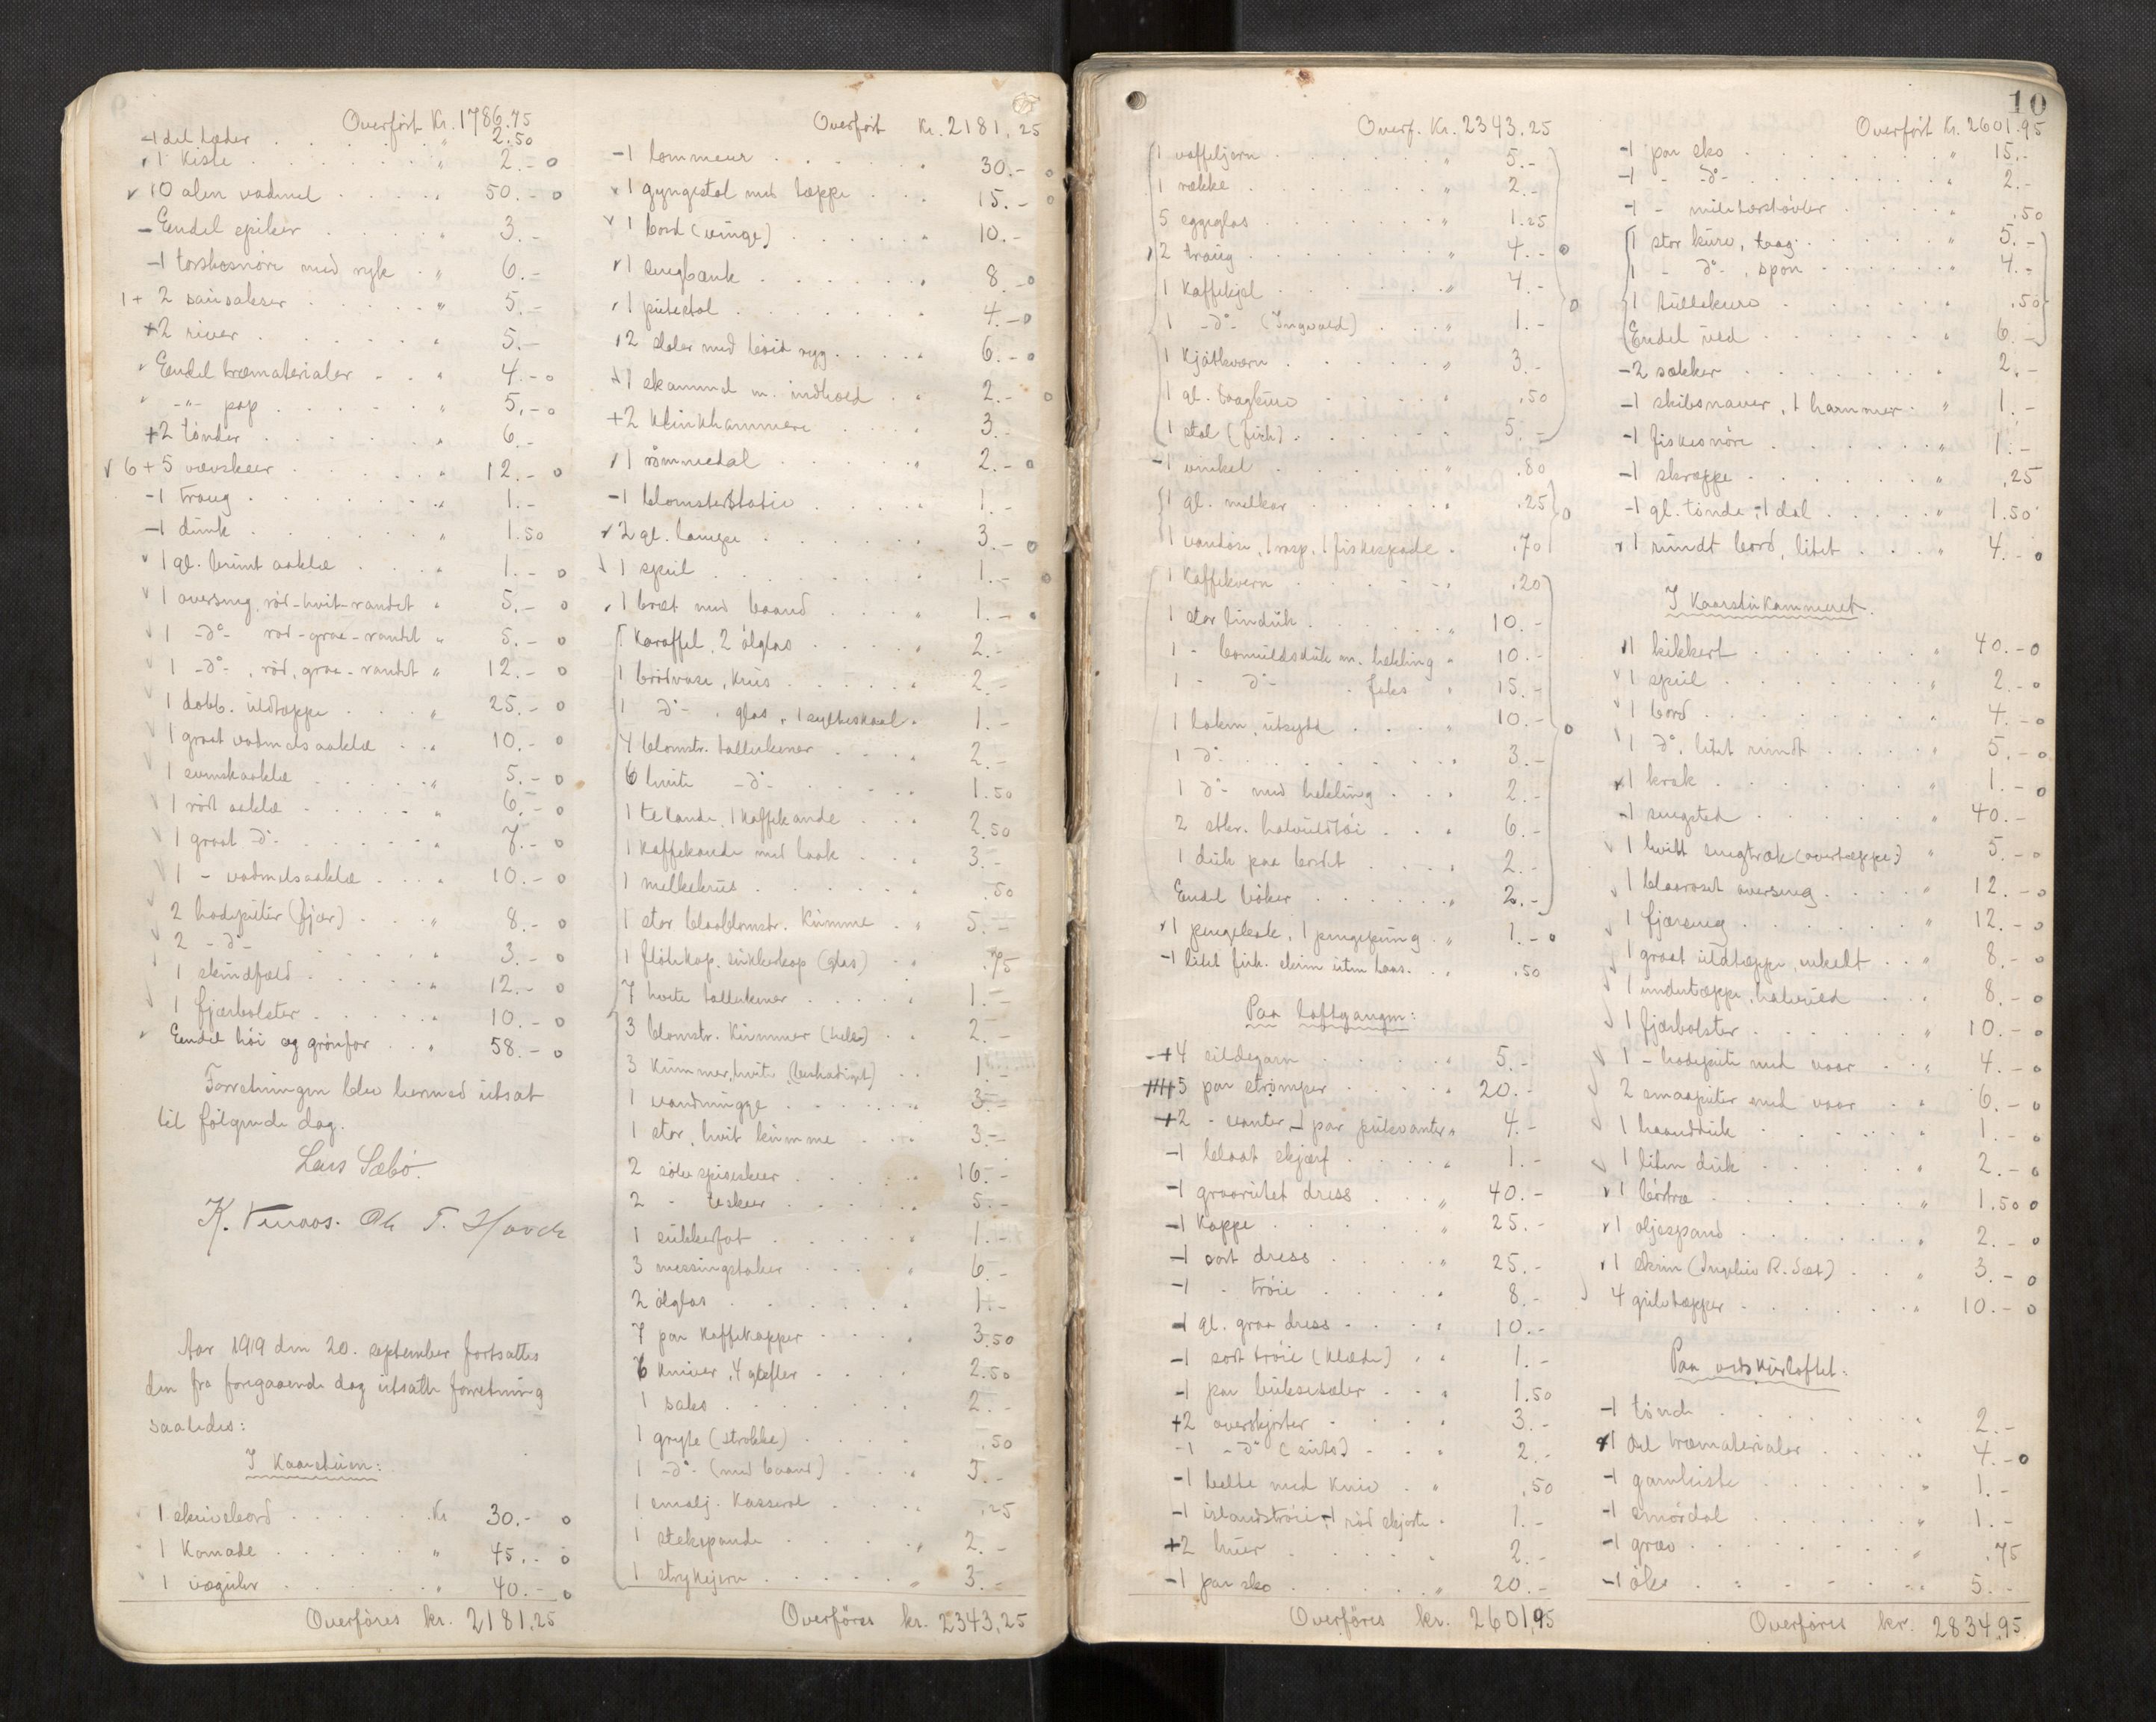 Overført Kr. 1786.75
-1 del læder " 2.50
1 kiste " 2.- o
v 10 alen vadmel " 50.- o
- Endel spiker 3.-
-1 torskesnøre med ryk " 6.-
1+ 2 sausakser " 5.-
+2 river " 5.-
" Endel træmaterialer " 4.- o
" -"- pap " 5.- o
+2 tønder " 6.-
v 6+5 vævskeer " 12.- o
-1 traug " 1.-
-1 dunk " 1.50
v 1 gl. brunt aaklæ " 1.- o
v 1 overseng, rød-hvit-randet " 5.- o
v 1 -d°- rød-graa-randet " 5.- o
v 1 -d°-, rød, graa-randet " 12.- o
1 dobb. uldtæppe " 25.- o
v 1 graat vadmelsaaklæ " 10.- o
1 svenskaaklæ " 5.- o
v 1 rødt aaklæ " 6.- o
v 1 graat -d°- " 7.- o
v 1 - vadmelsaaklæ " 10.- o
v 2 hodeputer (fjær) " 8.- o
v 2 -d°- 3.- o
v 1 skindfæld " 12.- o
v 1 fjærbolster " 10.- o
v Endel høi og grønfor " 58.- o
Forretningen blev hermed utsat
til følgende dag.
Lars Sæbø.
Aar 1919 den 20. september fortsattes
den fra foregaaende dag utsatte forretning
saaledes:
I Kaarstuen:
1 skrivebord Kr 30.- o
1 Komode " 45.- o
1 væguhr " 40.- o
Overføres kr. 2181,25
Overført Kr. 2181,25
-1 lommeur " 30.- o
v 1 gyngestol med tæppe 15.- o
v 1 bord (vinge) " 10.-
v 1 sengbænk " 8.- o
v 1 putestol 4.- o
v 2 stoler med høit ryg 6.- o
v 1 skammel m. indhold 2.- o
+2 Klinkhammere 3.-
v 1 rømmedal " 2.- o
-1 blomsterstativ 1.-
v 2 gl. lampe " 3.- o
v 1 speil 1.- o
v 1 bræt med baand " 1.- o
1 Karaffel, 2 ølglas 2.-
1 brødvase, Krus " 2.-
1 d°-, glas, 1 sylteskaal " 1.-
4 blomstr. tallerkener 2.-
6 hvite -d°- 1.50
1 tekande, 1 kaffekande 2.50
1 kaffekande med laak 3.-
1 melkekrus .50
1 stor blaablomstr. Kumme " 5.-
1 fløtekop, sukkerkop (glas) .75
7 hvite tallerkener 1.-
3 blomstr. Kummer (hele) 2.-
3 Kummer, hvite, (beskadiget) 1.-
1 vandmugge " 3.-
1 stor, hvit kumme " 3.-
2 sølv spiseskeer 16.-
2 - teskeer 5.-
1 sukkerfat 1.-
3 messingstaker " 6.-
2 ølglas 1.-
7 par Kaffekopper 3.50
6 Kniver, 4 gafler 2.50
1 saks 2.-
1 gryte (strokke) .50
1 -d°- (med baand) 3.-
1 emalj. Kasserol .25
1 stekepande " 2.-
1 strykejern " 3.-
Overføres kr. 2343,25
10
Overf. Kr. 2343,25
1 vaffeljern " 5.-
1 række " 2.-
5 eggeglas " 1.25
v 2 traug " 4.- o
1 Kaffekjel " 4.-
1 -d°- (Ingvald) " 1.-
1 Kjøtkværn " 3.-
1 gl. taagkurv .50
1 stol (firk) " 5.-
-1 vinkel " .80
1 gl. melkar " .25
1 vandøse, 1 rasp, 1 fiskespade .70
1 Kaffekvern .20
1 stor linduk " 10.-
1 - bomuldsduk m. hekling " 10.-
1 - d°- . " 15.-
1 laken, utsydd " 10.-
1 d° 3.-
1 d° med hekling 2.-
2 stkr. halvuldtøi 6.-
1 duk paa bordet 2.-
Endel bøker " 2.-
v 1 pengeleak, 1 pengepung " 1.- o
-1 litet firk. skrin uten laas. " .50
Paa loftgangen:
-+4 sildegarn 5.-
5 par strømper " 20.-
+2 - vanter, 1 par pulsvanter " 4.-
-1 blaat skjærf " 1.-
-1 graarutet dress " 40.-
-1 kappe " 25.-
-1 sort dress " 25.-
-1 - trøie " 8.-
-1 gl. graa dress " 10.-
-1 sort trøie (klæde) " 1.-
-1 par bukseseler " 1.50
+2 overskjorter " 3.-
-1 -d° (sirts) " 2.-
-1 belte med kniv " .50
-1 islandstrøie, 1 rød skjorte " 1.-
+2 huer " 2.-
-1 par sko " 20.-
Overføres kr. 2601,95
Overført Kr. 2601,95
-1 par sko " 15.-
-1 - -d°- " 2.-
-1 - militærstøvler .50
1 stor kurv, taag " 5.-
1 - d°-, spon 4.-
1 sullekurv .50
Endel ved 6.-
-2 sækker " 2.-
-1 skibsnaver, 1 hammer " 1.-
-1 fiskesnøre 1.-
-1 skræppe " .25
-1 gl. tønde, 1 dal " 1.50
v 1 rundt bord, litet " 4.- o
I Kaarstukammeret.
v 1 kikkert " 40.- o
v 1 speil " 2.- o
v 1 bord " 4.- o
v 1 d°. litet rundt 5.- o
v 1 krak " 1.- o
-1 sengsted " 40.-
v 1 hvitt sengtræk (overtæppe) " 5.- o
v 1 blaaroset overseng " 12.- o
v 1 fjærseng " 12.- o
v 1 graat uldtæppe, enkelt " 8.- o
v 1 undertæppe, halvuld 8.- o
v 1 fjærbolster " 10.- o
v 1 - hodepute med vaar " 4.- o
v 2 smaaputer med vaar " 6.- o
v 1 haandduk " 1.- o
v 1 liten duk " 2.- o
v 1 børtræ " 1.50 o
v 1 oljespand " 2.- o
v 1 skrin (Ingeliv R. Sæt) " 3.- o
4 gulvtæpper " 10.- o
Paa vedskurloftet:
-1 tønde " 2.-
v 1 del træmaterialer " 4.- o
-1 garnkiste " 1.-
-1 smørdal " 1.-
-1 græv " .75
-1 øks " 5.-
Overføres kr. 2834,95